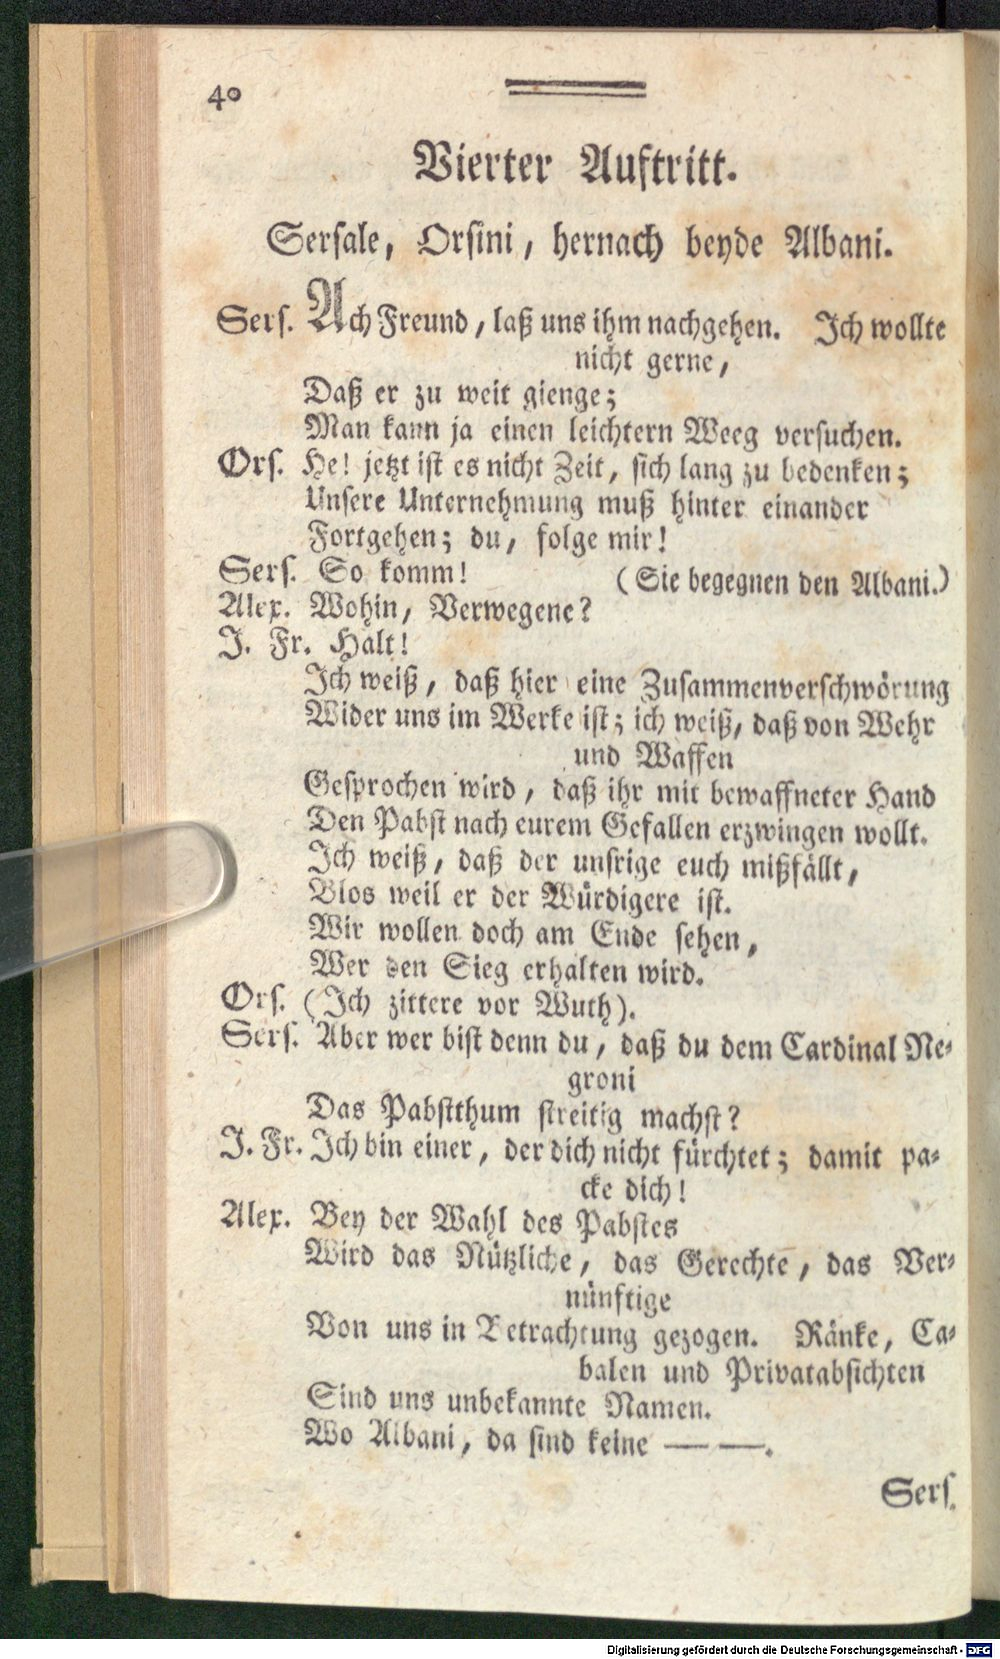 40
Vierter Auftritt.
Sersale, Orsini, hernach beyde Albani.
Sers. Ach Freund, laß uns ihm nachgehen. Ich wollte
nicht gerne,
Daß er zu weit gienge;
Man kann ja einen leichtern Weeg versuchen.
Ors. He! jetzt ist es nicht Zeit, sich lang zu bedenken;
Unsere Unternehmung muß hinter einander
Fortgehen; du, folge mir!
Sers. So komm! (Sie begegnen den Albani.)
Alex. Wohin, Verwegene?
J. Fr. Halt!
Ich weiß, daß hier eine Zusammenverschwörung
Wider uns im Werke ist; ich weiß, daß von Wehr
und Waffen
Gesprochen wird, daß ihr mit bewaffneter Hand
Den Pabst nach eurem Gefallen erzwingen wollt.
Ich weiß, daß der unsrige euch mißfällt,
Blos weil er der Würdigere ist.
Wir wollen doch am Ende sehen,
Wer den Sieg erhalten wird.
Ors. (Ich zittere vor Wuth).
Sers. Aber wer bist denn du, daß du dem Cardinal Ne-
groni
Das Pabstthum streitig machst?
J. Fr. Ich bin einer, der dich nicht fürchtet; damit pa-
cke dich!
Alex. Bey der Wahl des Pabstes
Wird das Nützliche, das Gerechte, das Ver-
nünftige
Von uns in Betrachtung gezogen. Ränke, Ca-
balen und Privatabsichten
Sind uns unbekannte Namen.
Wo Albani, da sind keine — —.
Sers.
Digitalisierung gefördert durch die Deutsche Forschungsgemeinschaft - DFG